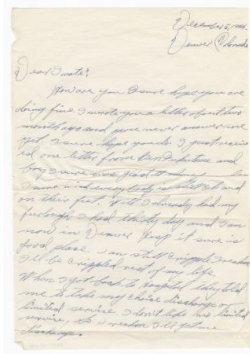 December 5, 1944
Denver, Colorado
Dear
How are you I sure hope you are
doing fine. I wrote you a letter about two
months ago and you never answer me
yet. I sure hope you do. I just receiv
ed one letter from
boy I sure was glad to hear
same and everybody is
on their feet. Well I already had my
furlough. I had thirty day and I am
now in Denver Yes it sure is
good place. I am still crippled. I reckon
I'll be crippled rest of my life.
When I got back to hospital they told
me to take my choice discharge or
limited service. I don't hope his limited
service, so I reckon I'll get me
discharge.